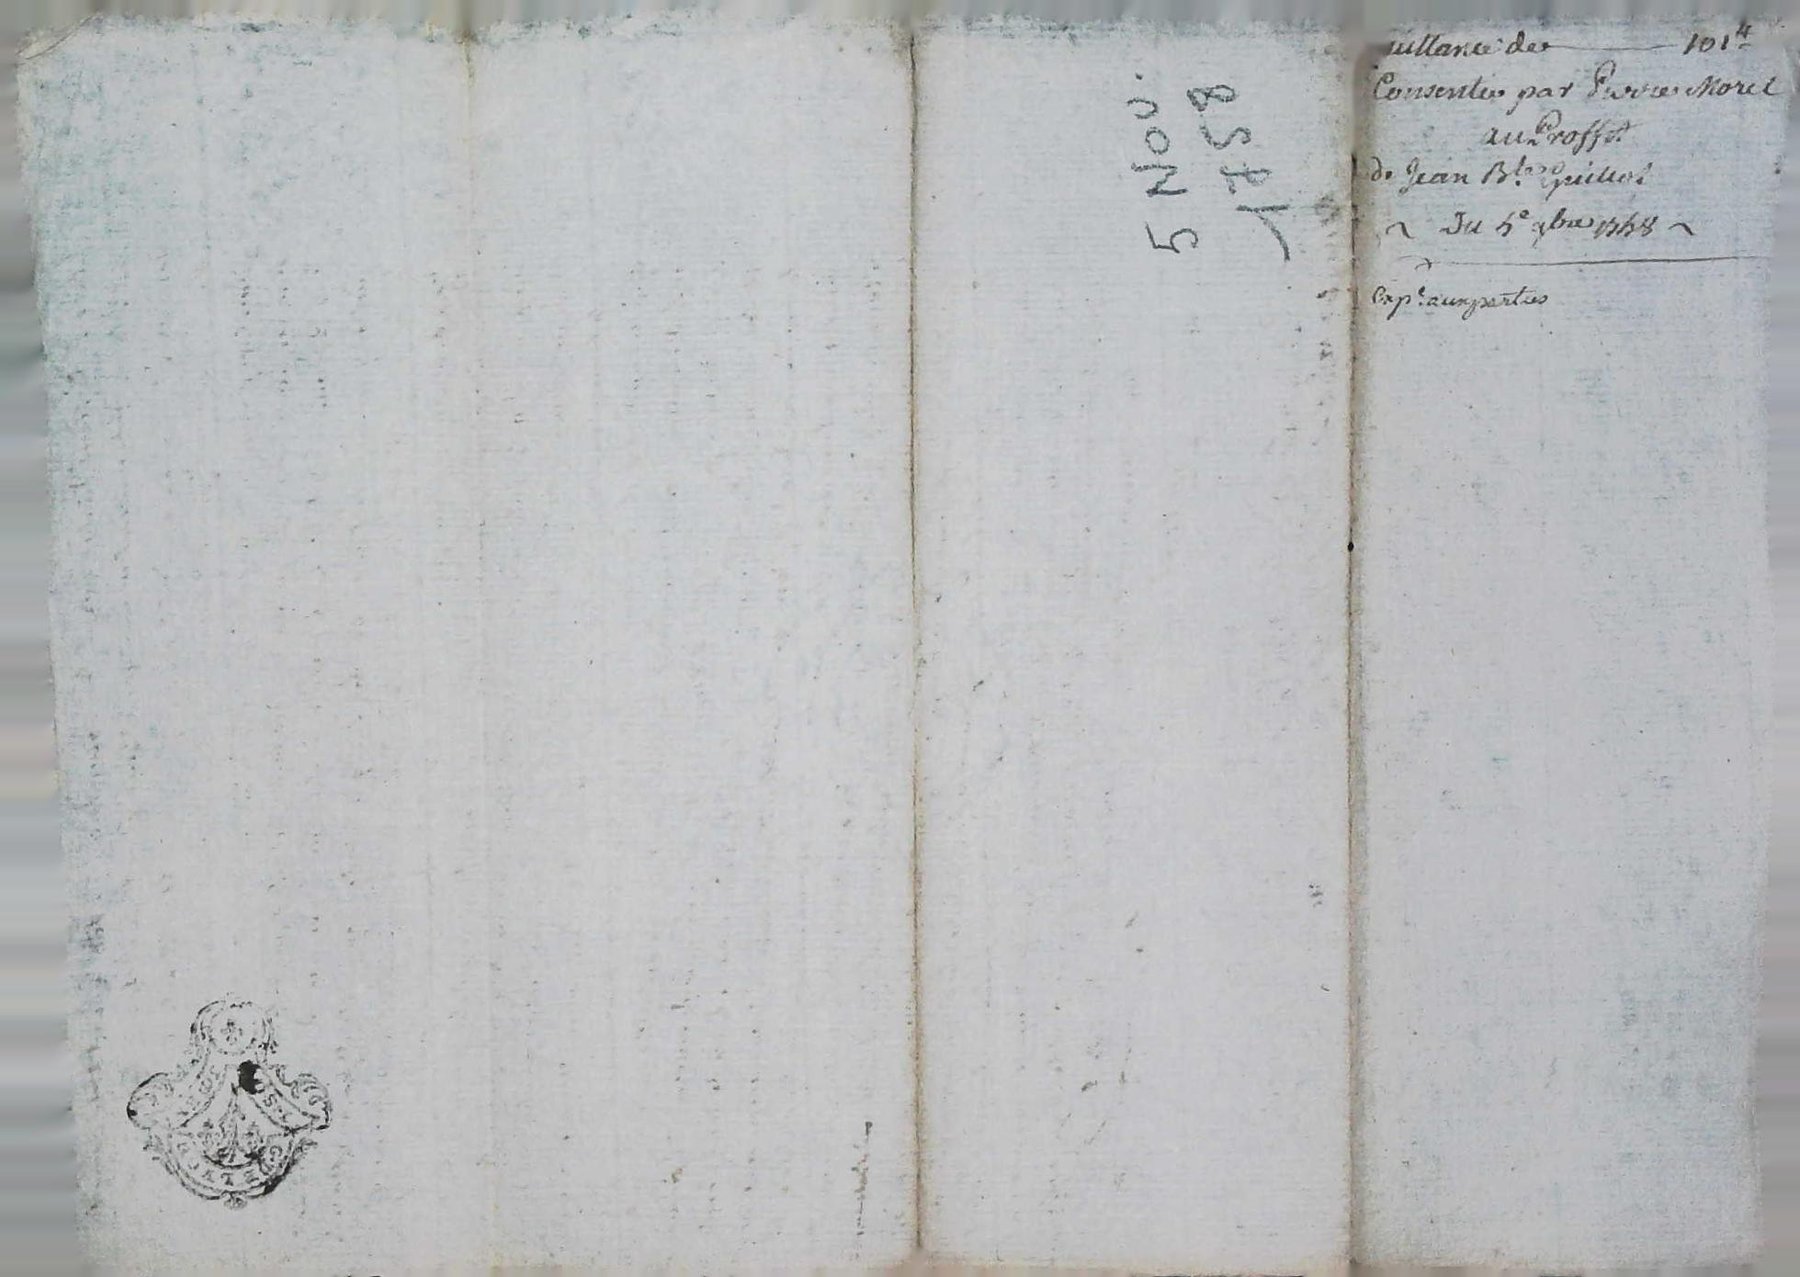 uittance de 101ᵗᵗ
Consentie par Pierre Morel
au Proffit
de Jean Bᵗᵉ Guillot
Du 5ᵉ 9bre 1758
Expᵉ aux parties
5 Nov.
1758